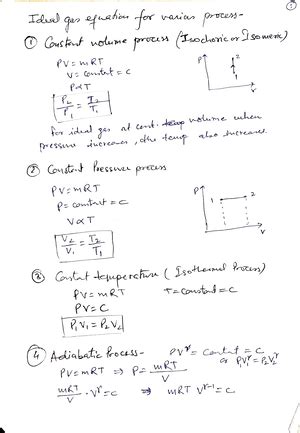 Ideal gas equation for various process-
① Constant volume process (Isochoric or Isomeric)
PV = mRT
V = constant = C
P∝T
P₂/P₁ = T₂/T₁
P
2
1
V
For ideal gas at const. volume when
pressure increases, the temp also increases.
② Constant Pressure process
PV = mRT
P = constant = C
V∝T
V₂/V₁ = T₂/T₁
P
1
2
V
③ Constant temperature (Isothermal Process)
PV = mRT T = constant = C
PV = C
P₁V₁ = P₂V₂
④ Adiabatic Process- PV^γ = Constant = C
or P₁V₁^γ = P₂V₂^γ
PV = mRT ⇒ P = mRT/V
mRT/V · V^γ = C ⇒ mRT V^γ-1 = C